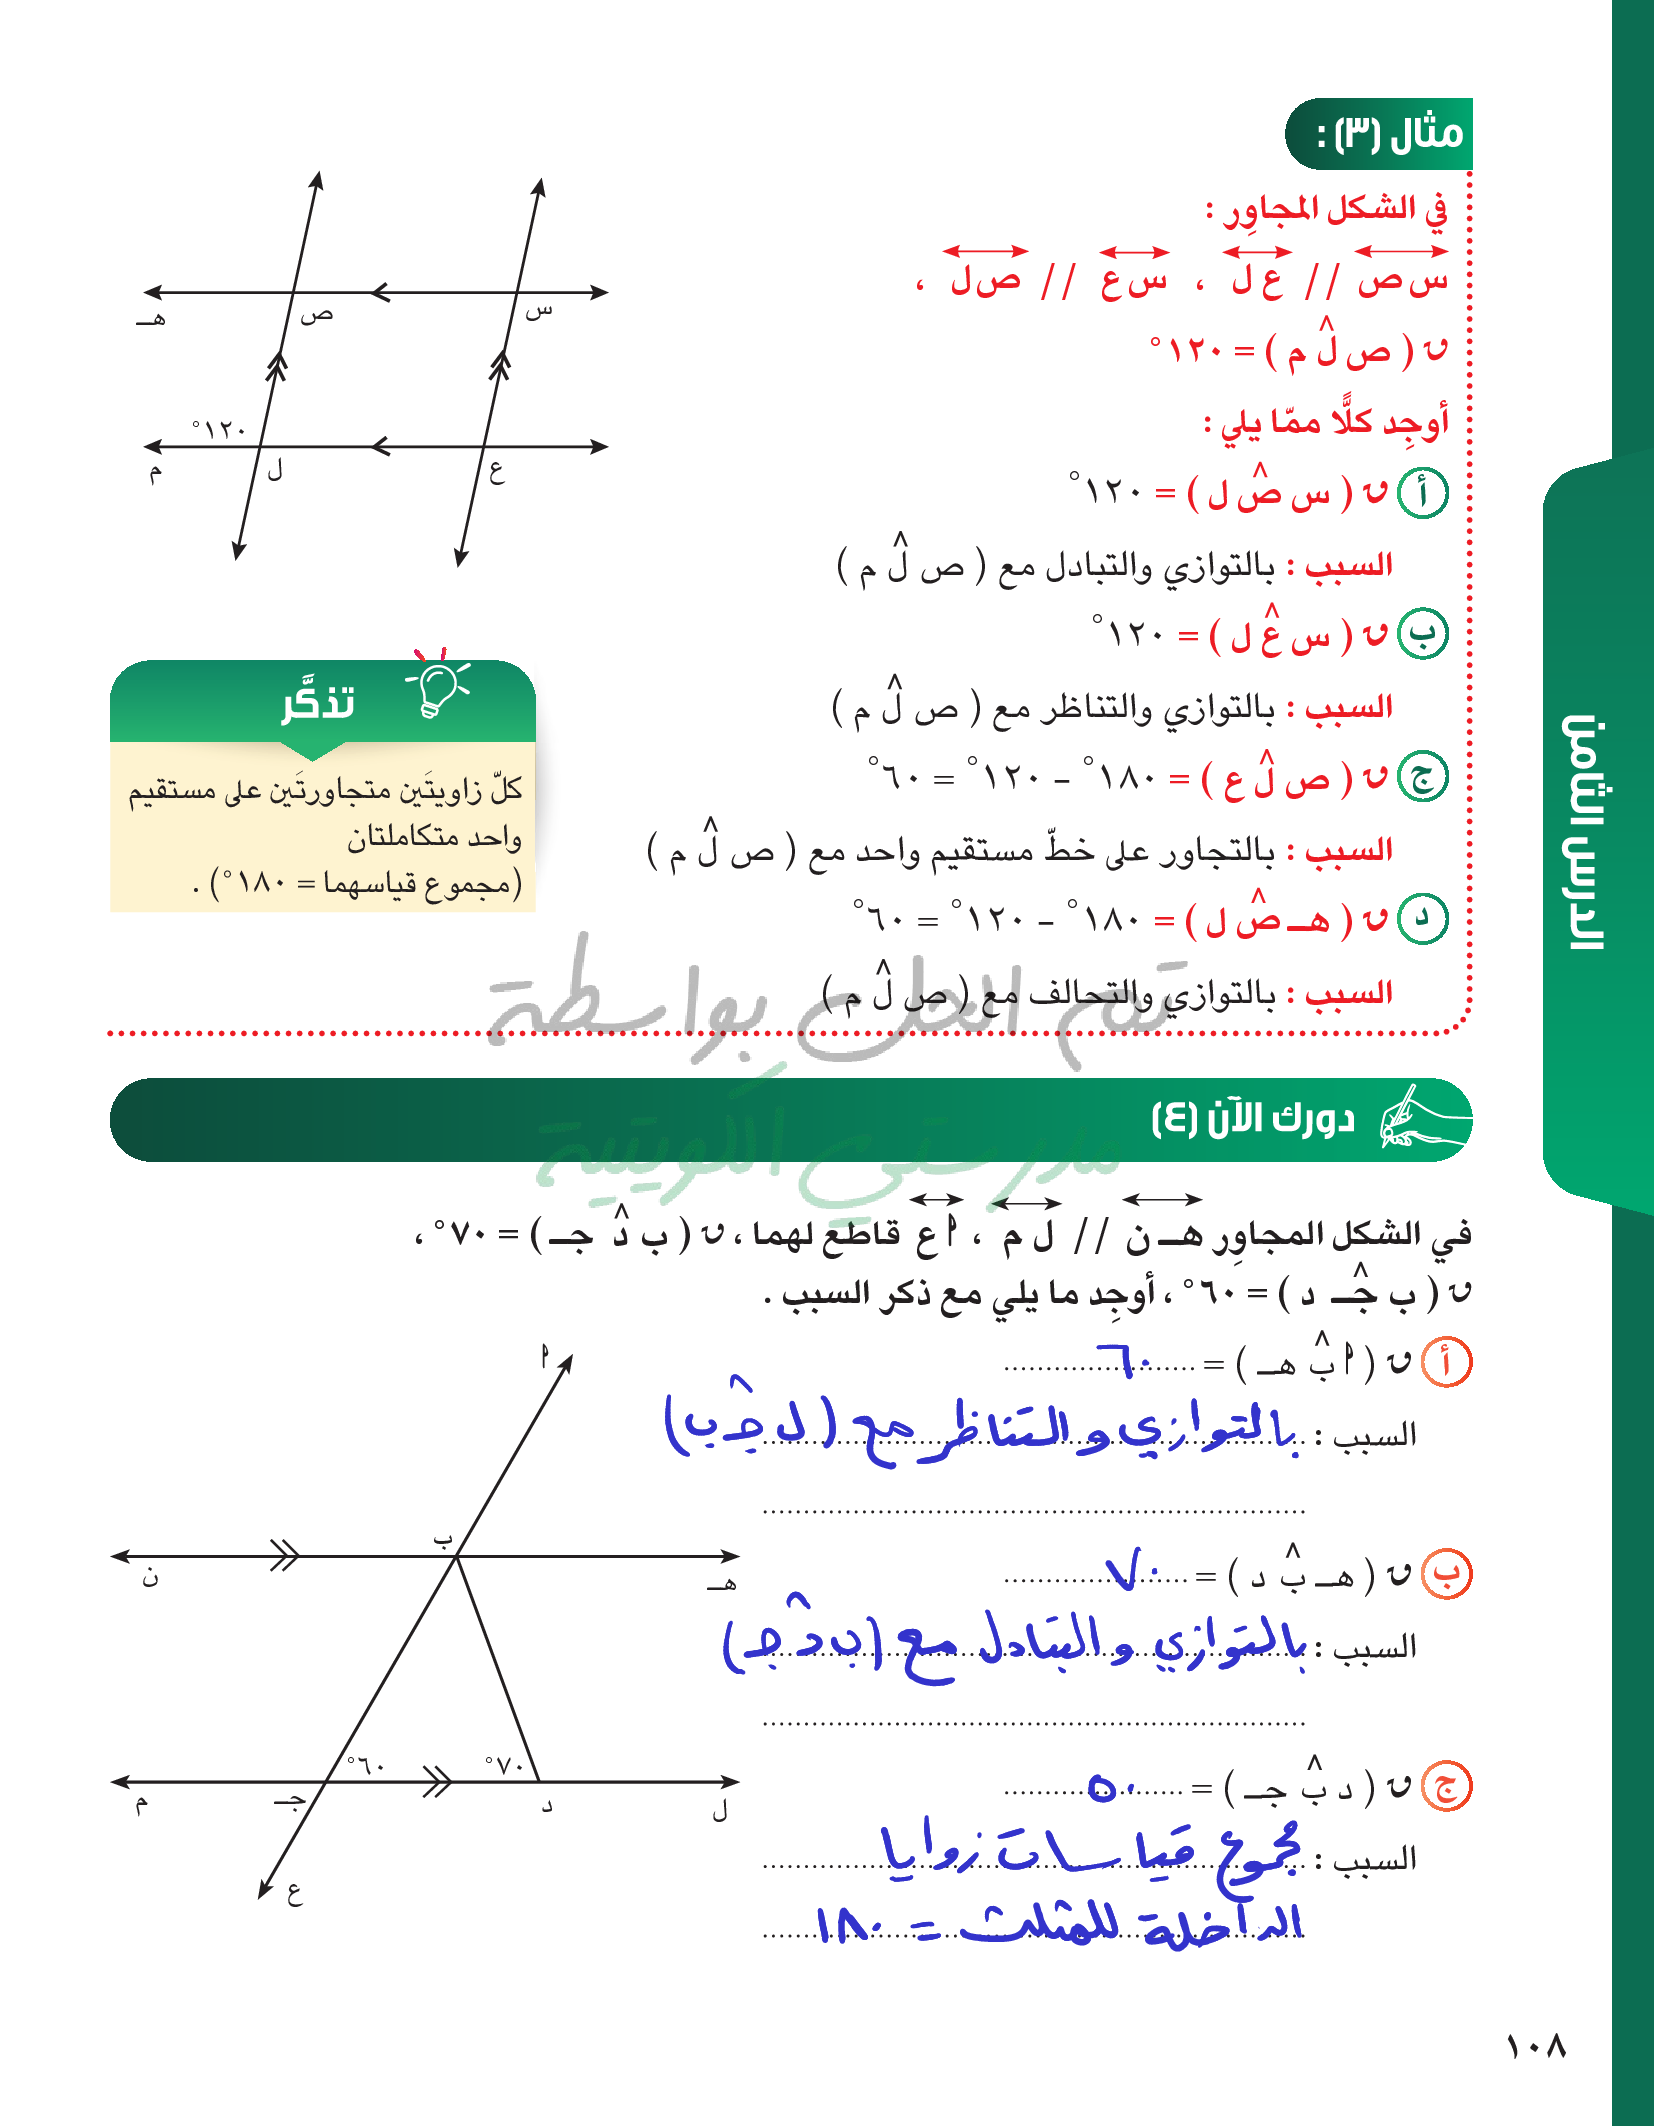 مثال (٣) :
في الشكل المجاوِر :
س ص // ع ل ، س ع // ص ل ،
ق ( ص ل̂ م ) = ١٢٠°
أوجِد كلًّا ممّا يلي :
أ ق ( س ص̂ ل ) = ١٢٠°
السبب : بالتوازي والتبادل مع ( ص ل̂ م )
ب ق ( س ع̂ ل ) = ١٢٠°
السبب : بالتوازي والتناظر مع ( ص ل̂ م )
ج ق ( ص ل̂ ع ) = ١٨٠° – ١٢٠° = ٦٠°
السبب : بالتجاور على خطّ مستقيم واحد مع ( ص ل̂ م )
د ق ( هـ ص̂ ل ) = ١٨٠° – ١٢٠° = ٦٠°
السبب : بالتوازي والتحالف مع ( ص ل̂ م )
س
ص
هـ
١٢٠°
ع
ل
م
تذكَّر
كلّ زاويتَين متجاورتَين على مستقيم
واحد متكاملتان
(مجموع قياسهما = ١٨٠°) .
تم الحل بواسطة
مدرستي الكويتية
دورك الآن (٤)
في الشكل المجاوِر هـ ن // ل م ، أ ع قاطع لهما ، ق ( ب د̂ جـ ) = ٧٠° ،
ق ( ب جـ̂ د ) = ٦٠° ، أوجِد ما يلي مع ذكر السبب .
أ ق ( أ ب̂ هـ ) = ٦٠
السبب : بالتوازي والتناظر مع ( ل جـ̂ ب )
ب ق ( هـ ب̂ د ) = ٧٠
السبب : بالتوازي والتبادل مع ( ب د̂ جـ )
ج ق ( د ب̂ جـ ) = ٥٠
السبب : مجموع قياسات زوايا
الداخلة للمثلث = ١٨٠
أ
ب
هـ
ن
٧٠°
٦٠°
ل
د
جـ
م
ع
الدرس الثامن
١٠٨